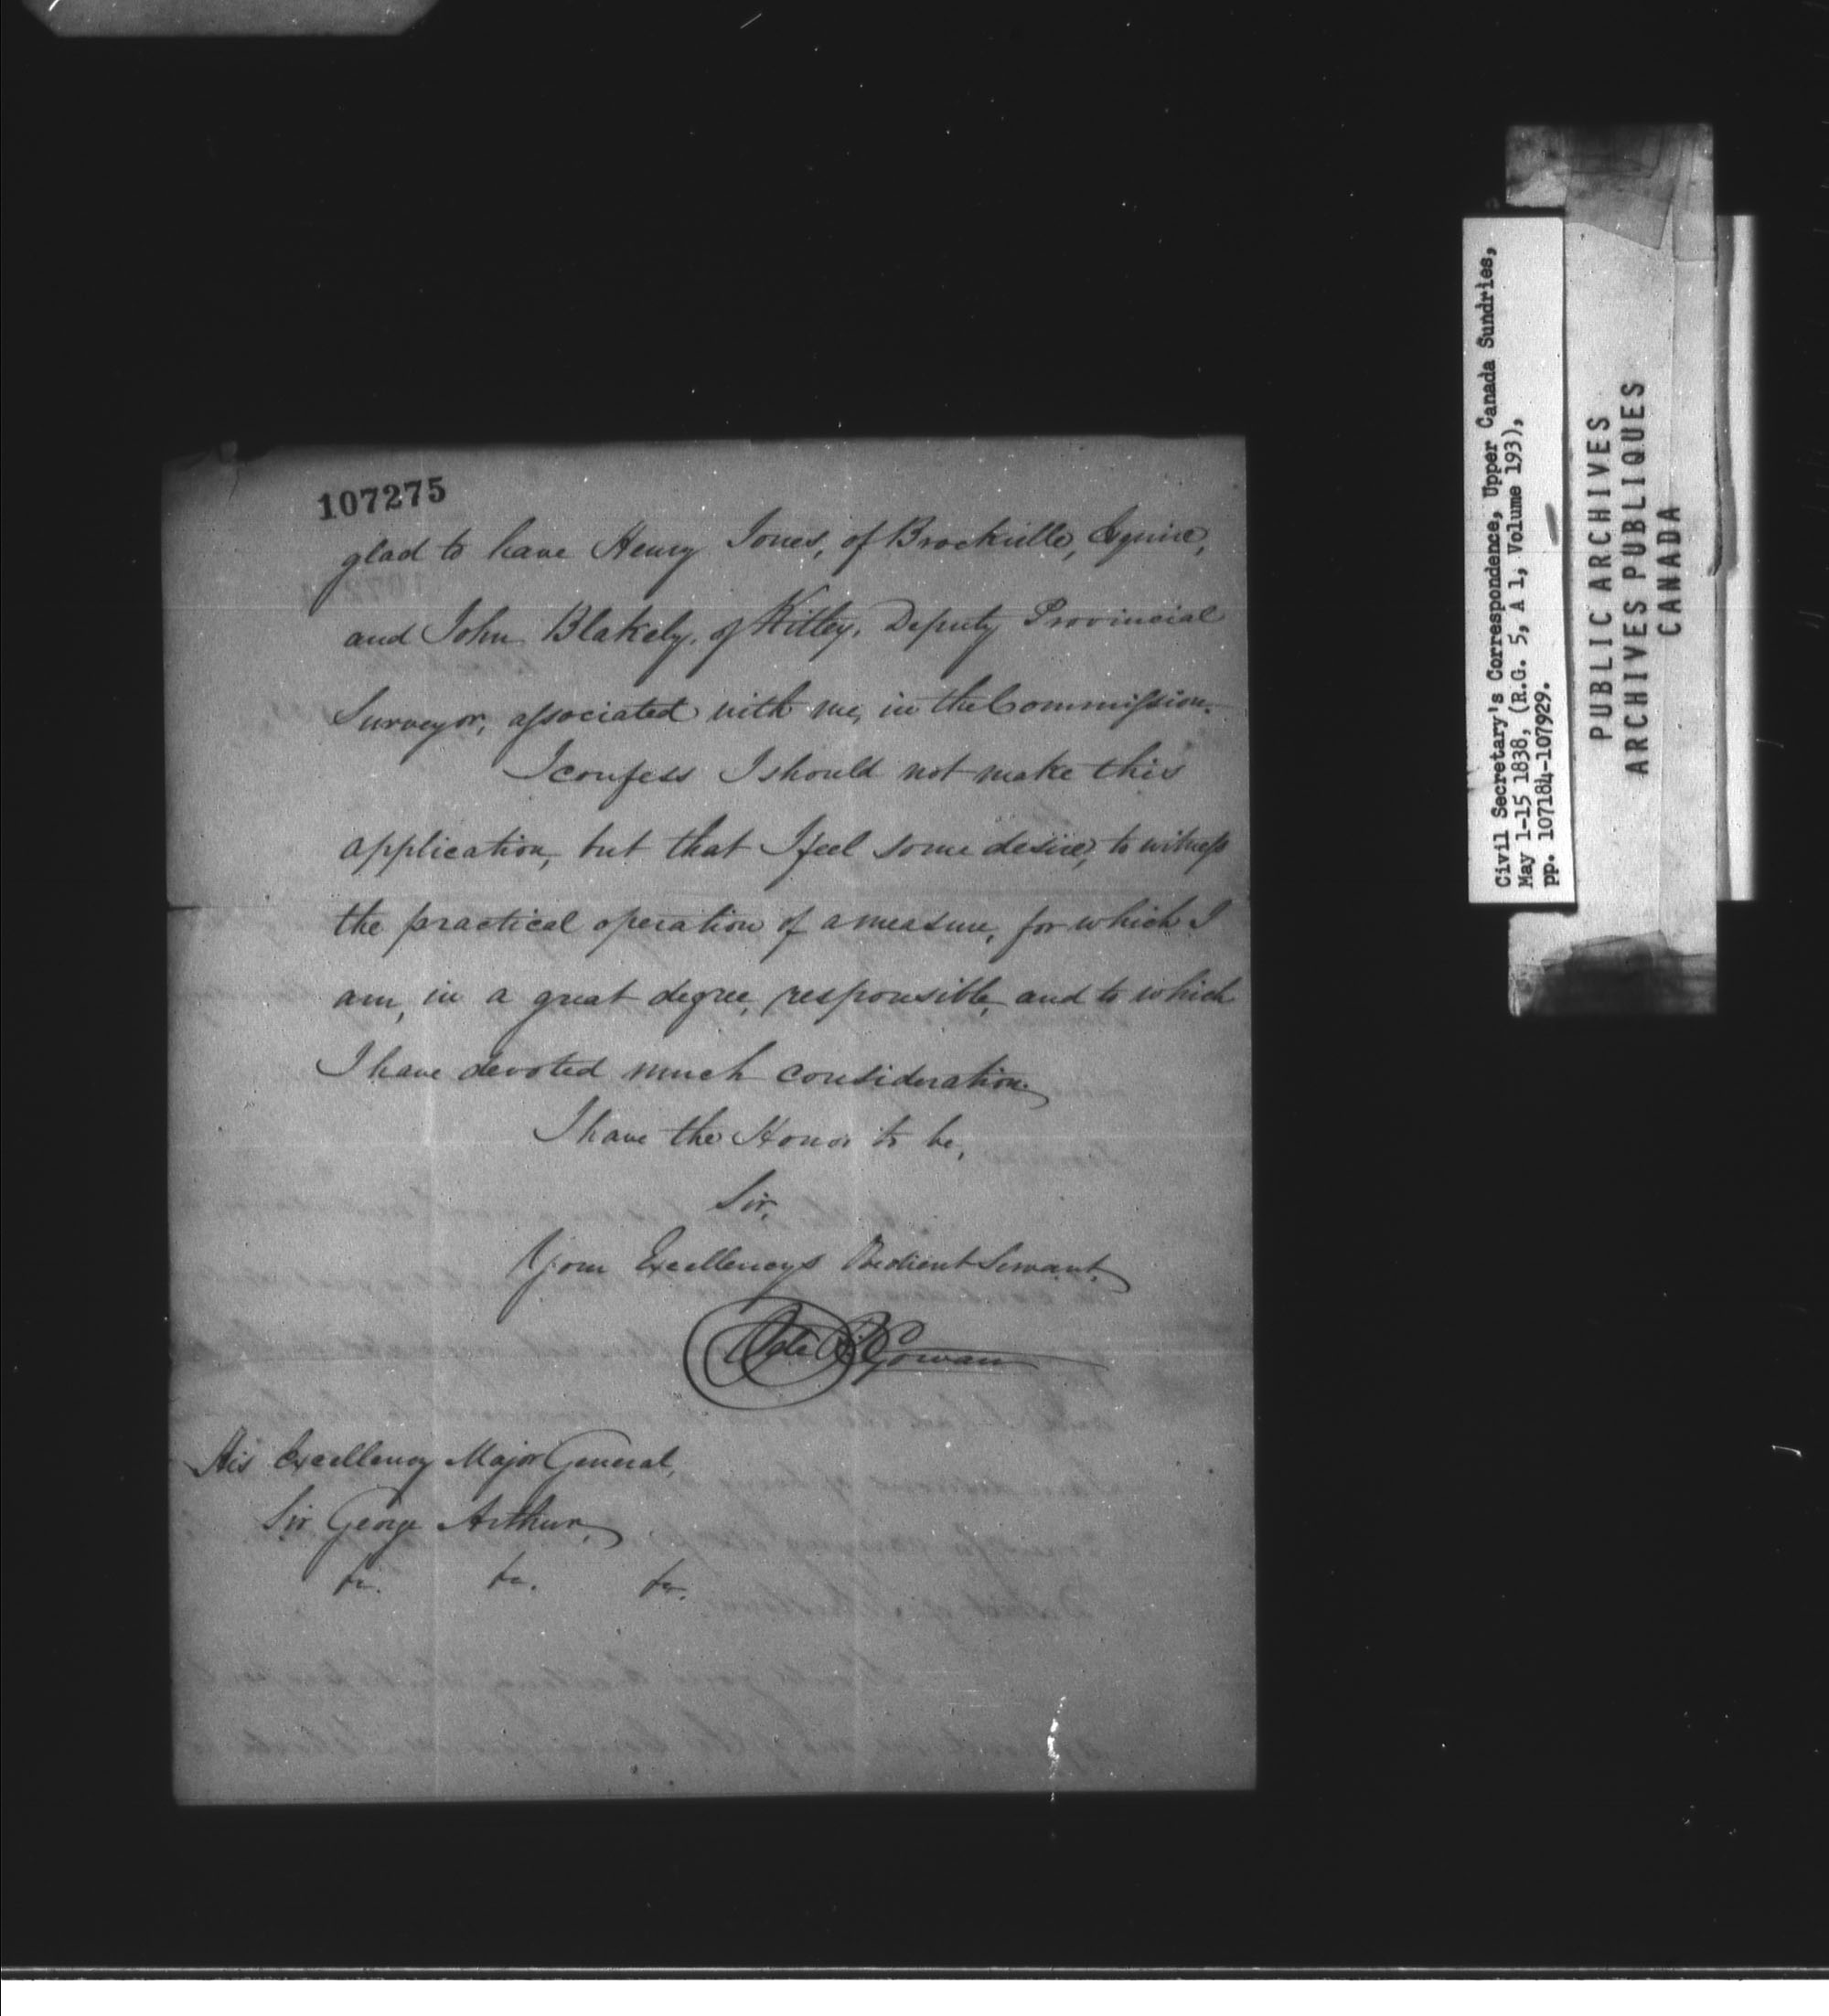 107275
glad to have Henry Jones, of Brockville, Esquire,
and John Blakely, of Kitley, Deputy Provincial
Surveyor, associated with me, in the Commission.
I confess I should not make this
application, but that I feel some desire, to witness
the practical operation of a measure, for which I
am, in a great degree, responsible, and to which
I have devoted much consideration.
I have the Honor to be,
Sir,
Your Excellencys Obedient Servant,
Ogle R. Gowan
His Excellency Major General,
Sir George Arthur,
&c. &c. &c.
Civil Secretary's Correspondence, Upper Canada Sundries,
May 1-15 1838, (R.G. 5, A 1, Volume 193),
pp. 107184-107929.
PUBLIC ARCHIVES
ARCHIVES PUBLIQUES
CANADA